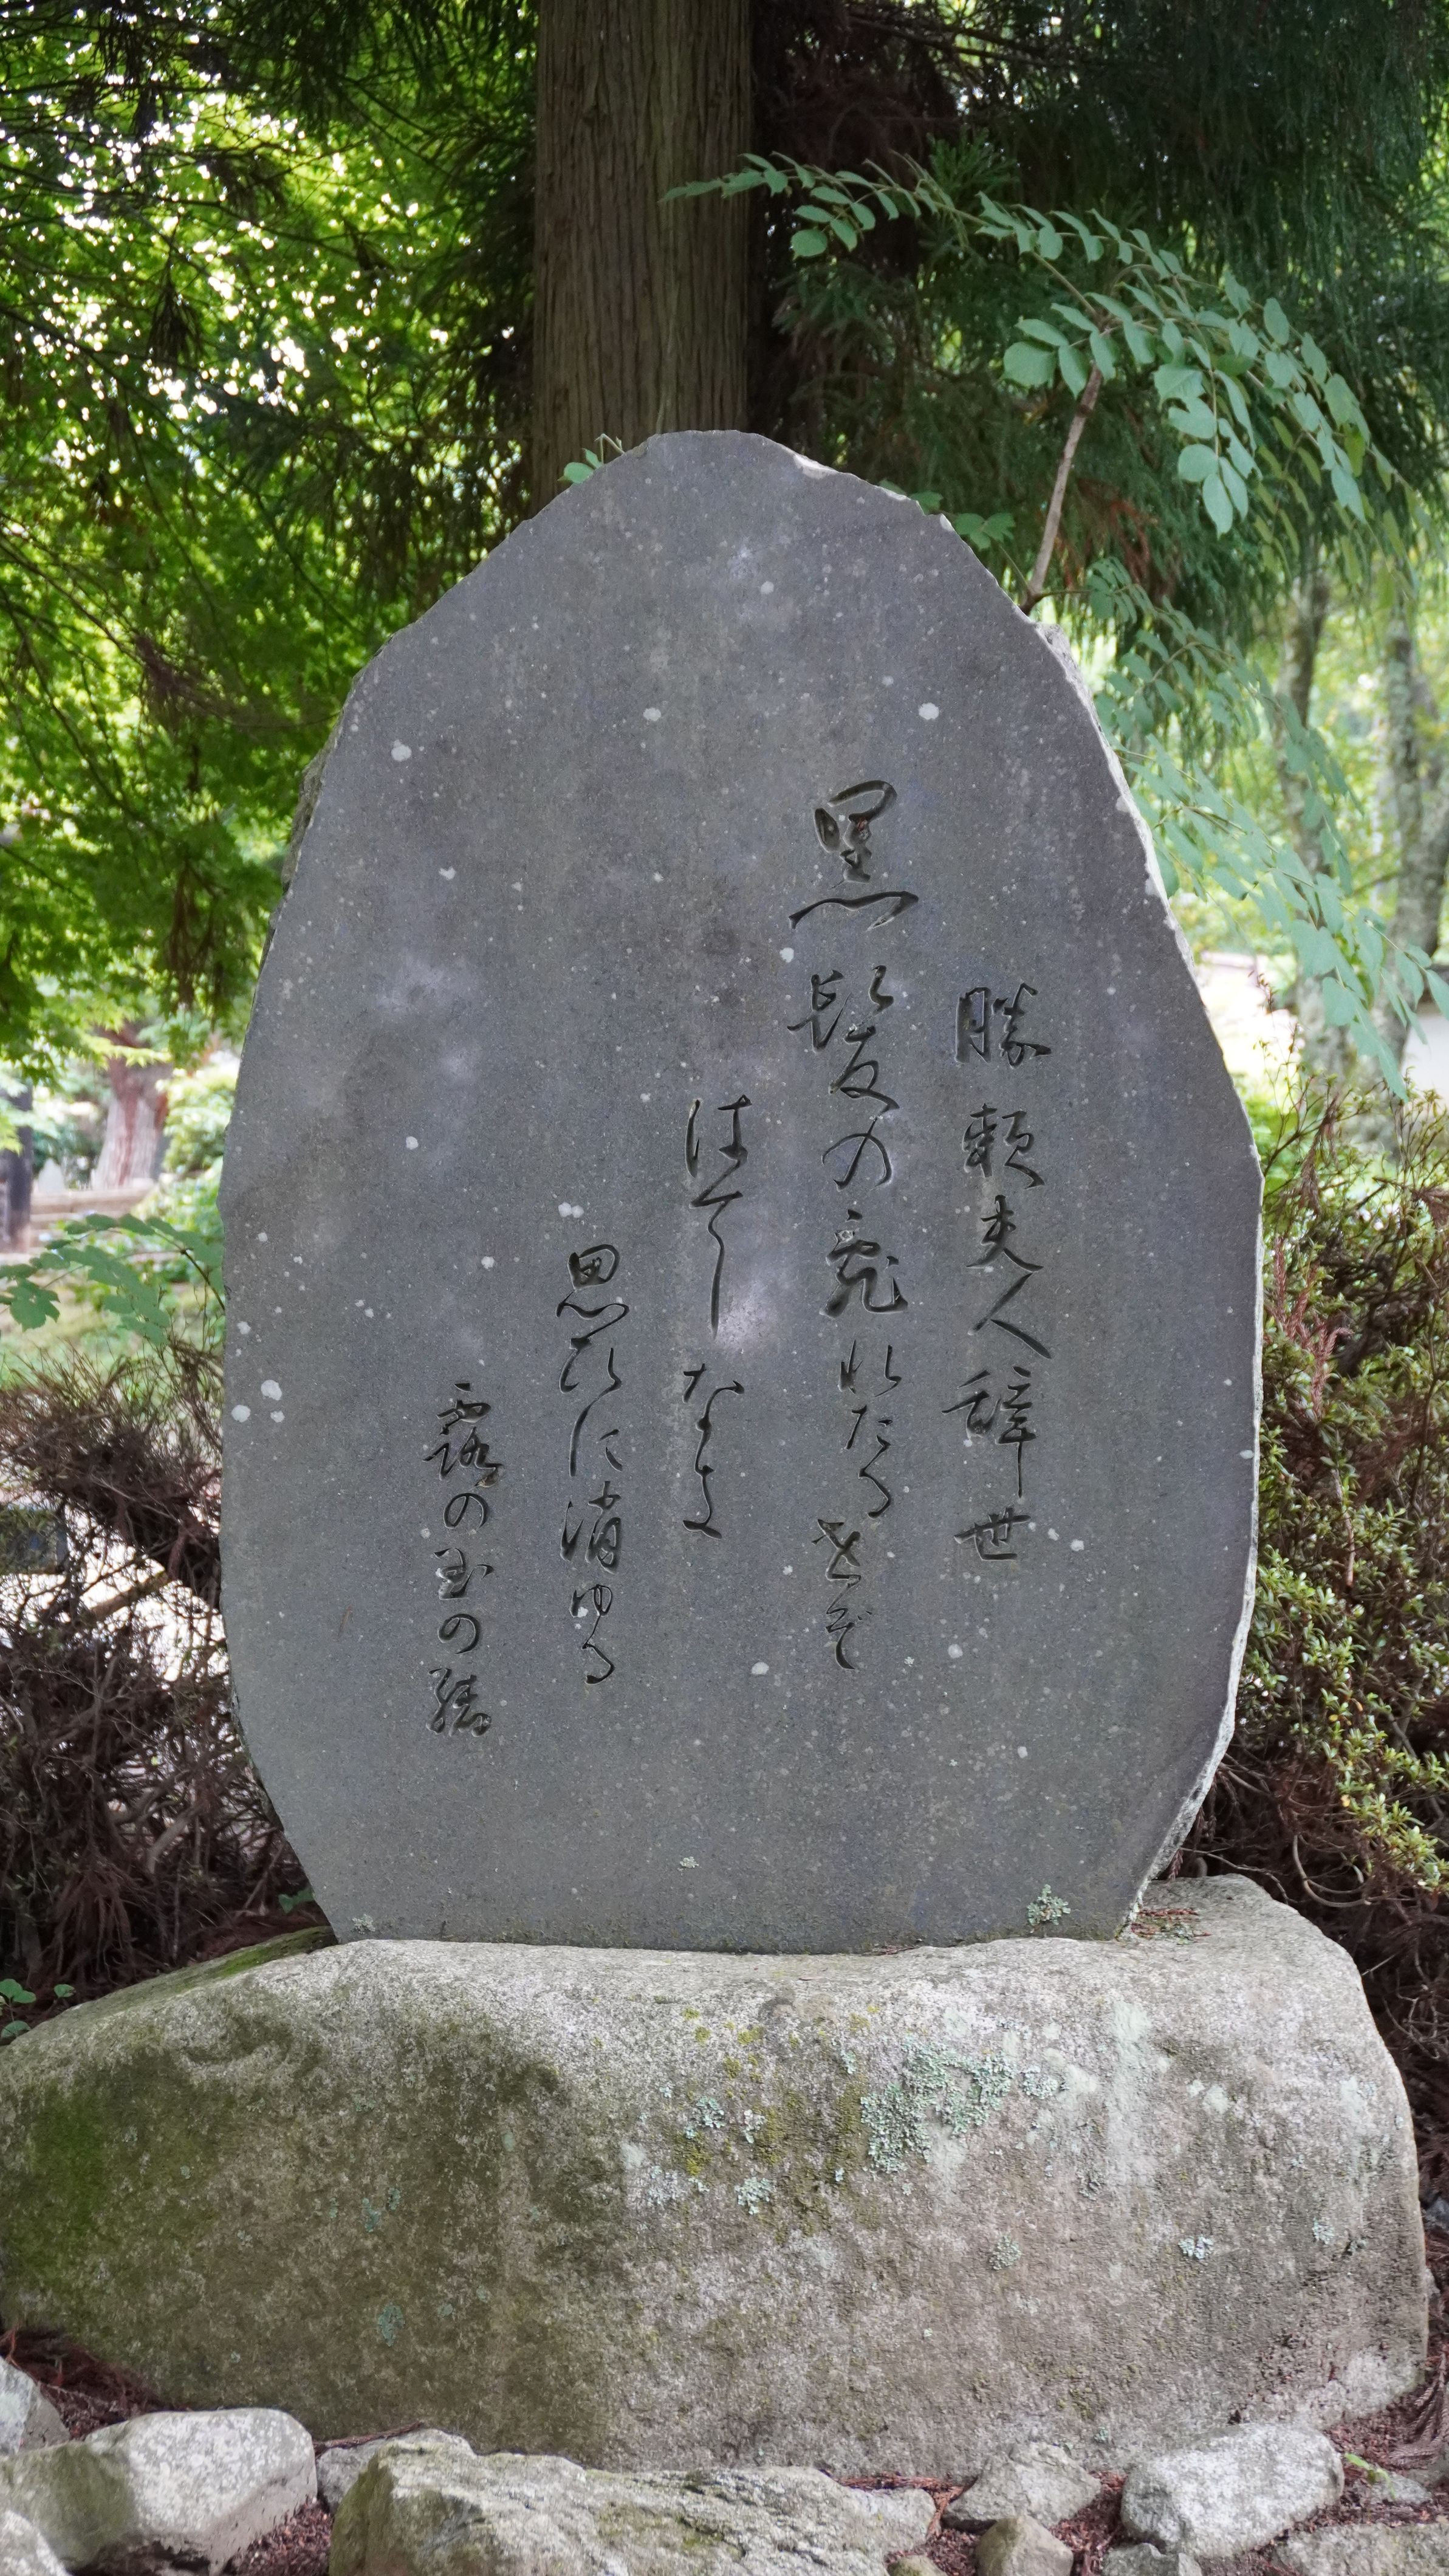 勝頼夫人辞世
黒髪の乱れたる世ぞ
はてしなき
思ひに消ゆる
露の玉の緒